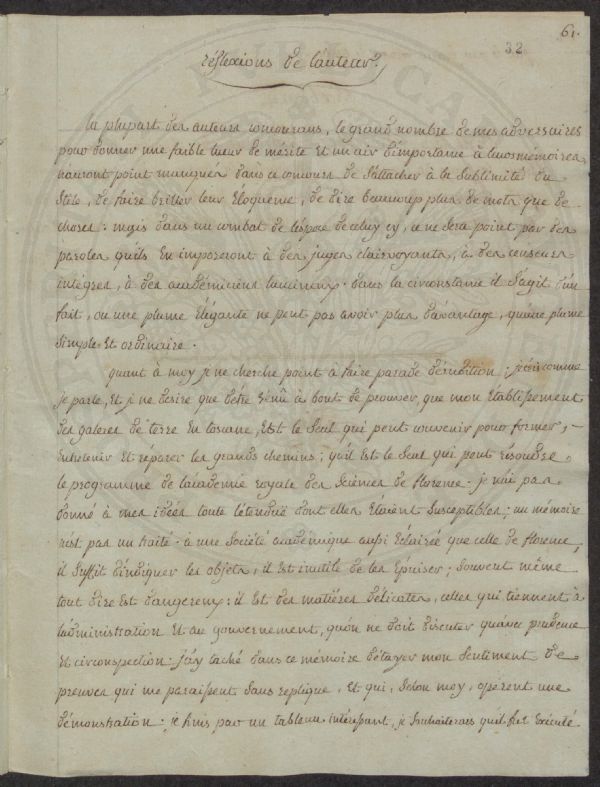 61.
32
réflexions de lauteur.
la plupart des auteurs concourans, le grand nombre de mes adversaires
pour donner une faible lueur de mérite et un air d'importance à leurs mémoires
nauront point manqués dans ce concours de s'attacher à la sublimité du
stile, de faire briller leur Eloquence, de dire beaucoup plus de mots que de
choses: mais dans un combat de l'espece de celuy cy, ce ne sera point par des
paroles quils En imposeront à des juges clairvoyants, à des censeurs
intègres, à des académiciens lumineux. dans la circonstance il s'agit d'un
fait, ou une plume Elégante ne peut pas avoir plus d'avantage, qu'une plume
simple Et ordinaire.
quant à moy je ne cherche point à faire parade d'érudition: j'écris comme
je parle, Et je ne désire que d'être vénû à bout de prouver, que mon Etablissement
des galères de terre En toscane, Est le seul qui peut convenir pour former,
Entretenir Et réparer les grands chemins; qu'il est le seul qui peut résoudre
le programme de lacademie royale des sciences de florence. je n'ai pas
donné à mes idées toute l'étenduë dont elles Etaient susceptibles; un mémoire
n'est pas un traité. à une société académique aussi Eclairée que celle de florence,
il suffit d'indiquer les objets, il Est inutile de les Epuiser; souvent même
tout dire Est dangereux: il Est des matières délicates, celles qui tiennent à
l'administration Et au gouvernement, qu'on ne doit discuter qu'avec prudence
Et circonspection: J'ay taché dans ce mémoire d'étayer mon sentiment de
preuves qui me paraissent sans replique, Et qui, selon moy, opèrent une
démonstration: je finis par un tableau intéressant, je souhaiterais qu'il fut Exécuté